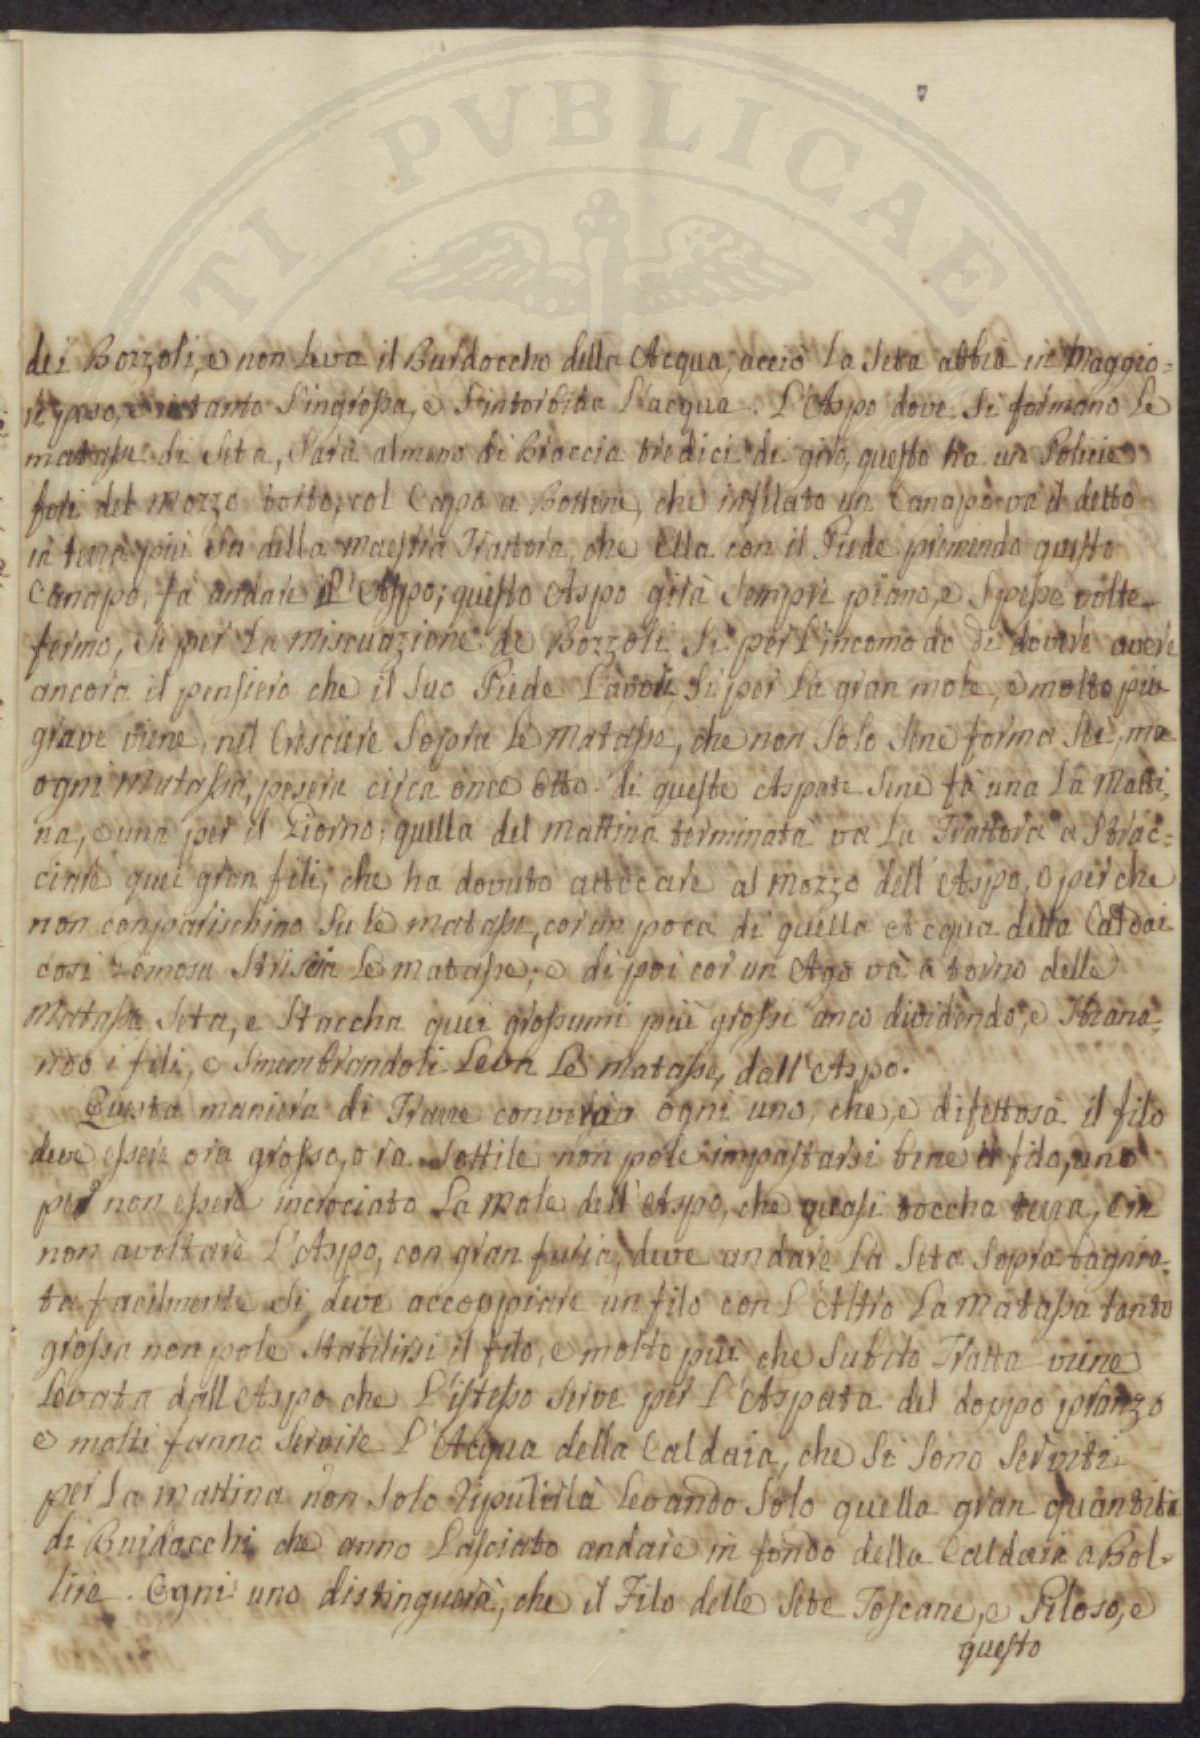 7
dei Bozzoli, e non leva il Burdoccho della Acqua, acciò la Seta abbia in Maggio=
re peso, e intanto s'ingrossa, e s'intorbida l'acqua. L'Aspo dove si formano le
matasse di Seta, sarà almeno di Braccia tredici di giro, questo ha un
del mozzo torto, col Capo a Bottone, che infilato un Canapo va il detto
in terra più via della maestra Trattora, che Ella con il Piede premendo questo
Canapo, fa andare l'Aspo; questo Aspo girà sempre piano, e spesse volte
fermo, si per la de Bozzoli si per l'incomodo di dovere avere
ancora il pensiero che il suo Piede Lavori, si per la gran mole, e molto più
grave viene, nel Crescere sopra le Matasse, che non solo sene forma sei, ma
ogni Matassa, peserà circa once otto. di queste Aspate sene fà una la Matti,
na, e una per il Ziorno; quella del mattina terminata va la Trattora a Strac=
ciare quei gran fili, che ha dovuto attaccare al mozzo dell'Aspo, e perche
non conparischino su le matasse, con un poca di quella Acqua della Caldai
cosi Zomosa striscia le matasse; e di poi con un Ago và a torno delle
Matassa Seta, e Staccha quei grossumi più grossi anco dividendo, e
ndo i fili, e smembrandoli Leva le matasse, dall'Aspo.
Questa maniera di Trarre converrà ogni uno, che, e difettosa il filo
deve essere ora grosso, ora sottile non pole impastarsi bene il filo, uno
per non essere incrociato La mole dell'Aspo, che quasi toccha terra, e in
non avoltare L'Aspo, con gran furia, deve andare la Seta sopra bagnia,
ta facilmente si, deve accoppiare un filo con l'Altro La Matassa tanto
grossa non pole stabilirsi il filo, e molto più che subito Tratta viene
Levata dall Aspo che l'istesso serve per l'Aspata del doppo pranzo
e molti fanno servire l'Acqua della Caldaia, che si sono serviti
per la mattina non solo ripulirla levando solo quella gran quantità
di Buidacchi che anno Lasciato andare in fondo della Caldaia a Bol=
lire. Ogni uno distinguerà, che il Filo delle Sete Toscane, e Peloso, e
questo